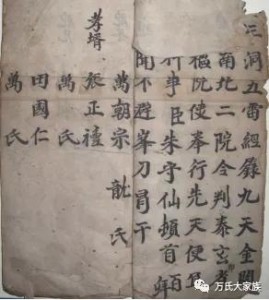 三洞五雷經籙九天金闕
南北二院令判泰玄
樞院使奉行先天便宜
行事臣朱守仙頓首百拜
聞不避峯刀冒干
萬朝宗 龍氏
孝壻 張正禮
萬氏
田國仁
萬氏
万氏大家族